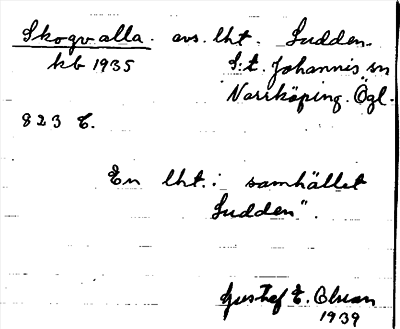 Skogvalla. avs. lht. Sudden.
kb 1935 S:t. Johannis sn
Norrköping. Ögl.
823 C.
En lht. i samhället
Sudden".
Gustaf E. Olsson
1939